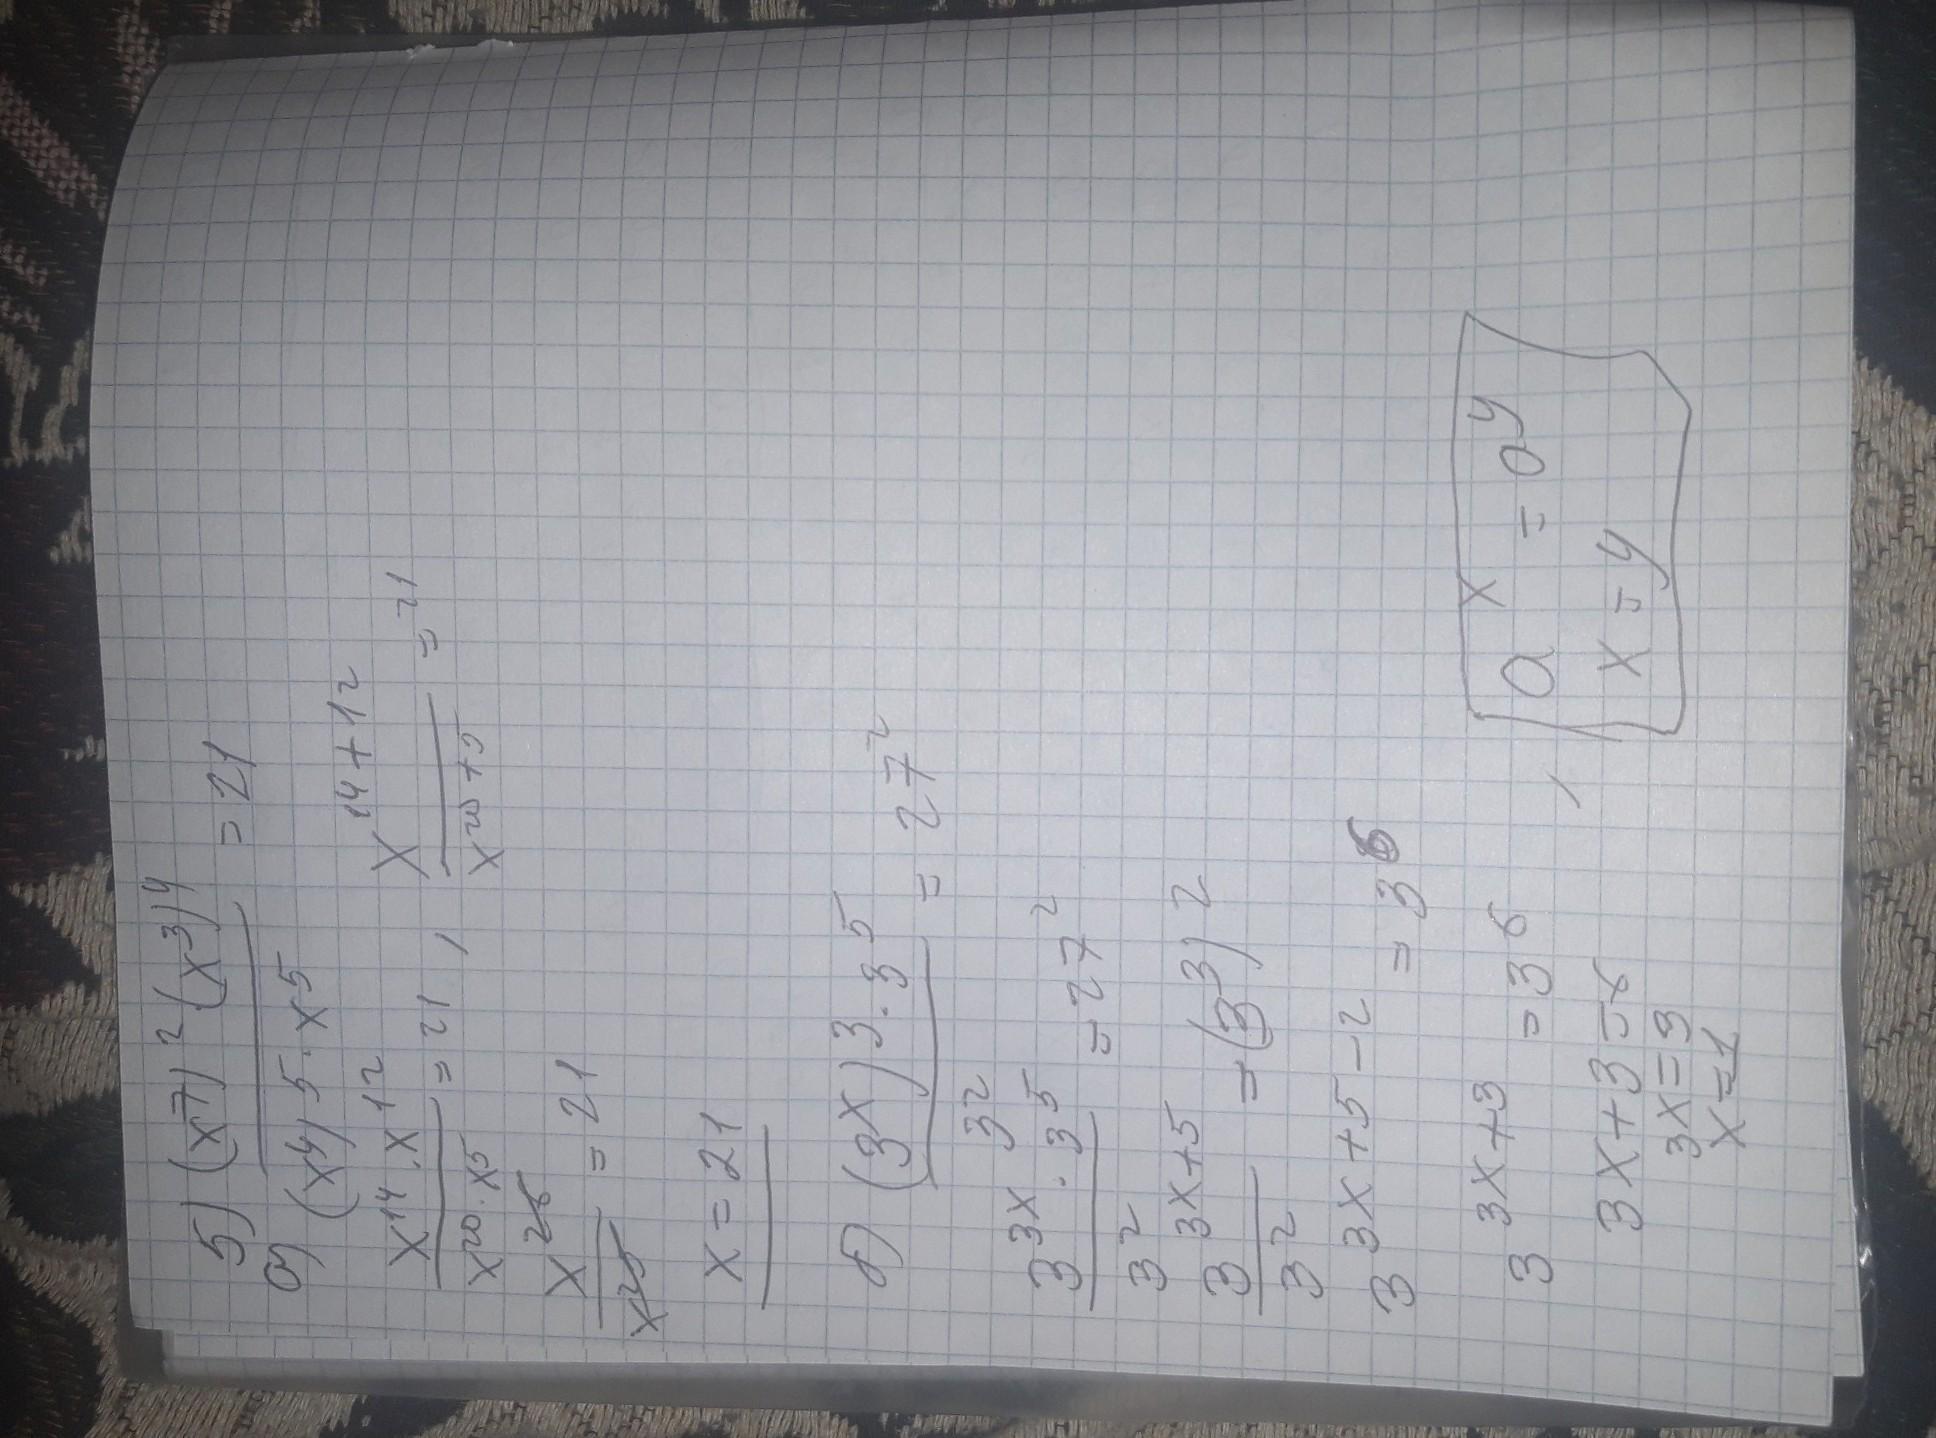 5) (x⁷)² · (x³)⁴ = 21
a) (x⁴)⁵ · x⁵
x¹⁴ · x¹² / x²⁰ · x⁵ = 21, x¹⁴⁺¹² / x²⁰⁺⁵ = 21
x²⁶ / x²⁵ = 21
x = 21
б) (3ˣ)³ · 3⁵ / 3² = 27²
3³ˣ · 3⁵ / 3² = 27²
3³ˣ⁺⁵ / 3² = (3³)²
3³ˣ⁺⁵⁻² = 3⁶
3³ˣ⁺³ = 3⁶, aˣ = aʸ
3x+3=6 x=y
3x=3
x=1